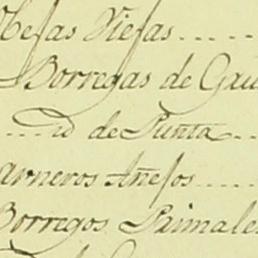 Obejas Viejas .....
Borregas de Gau
..... id de Punta ...
arneros Añejos .....
Borregos Primales